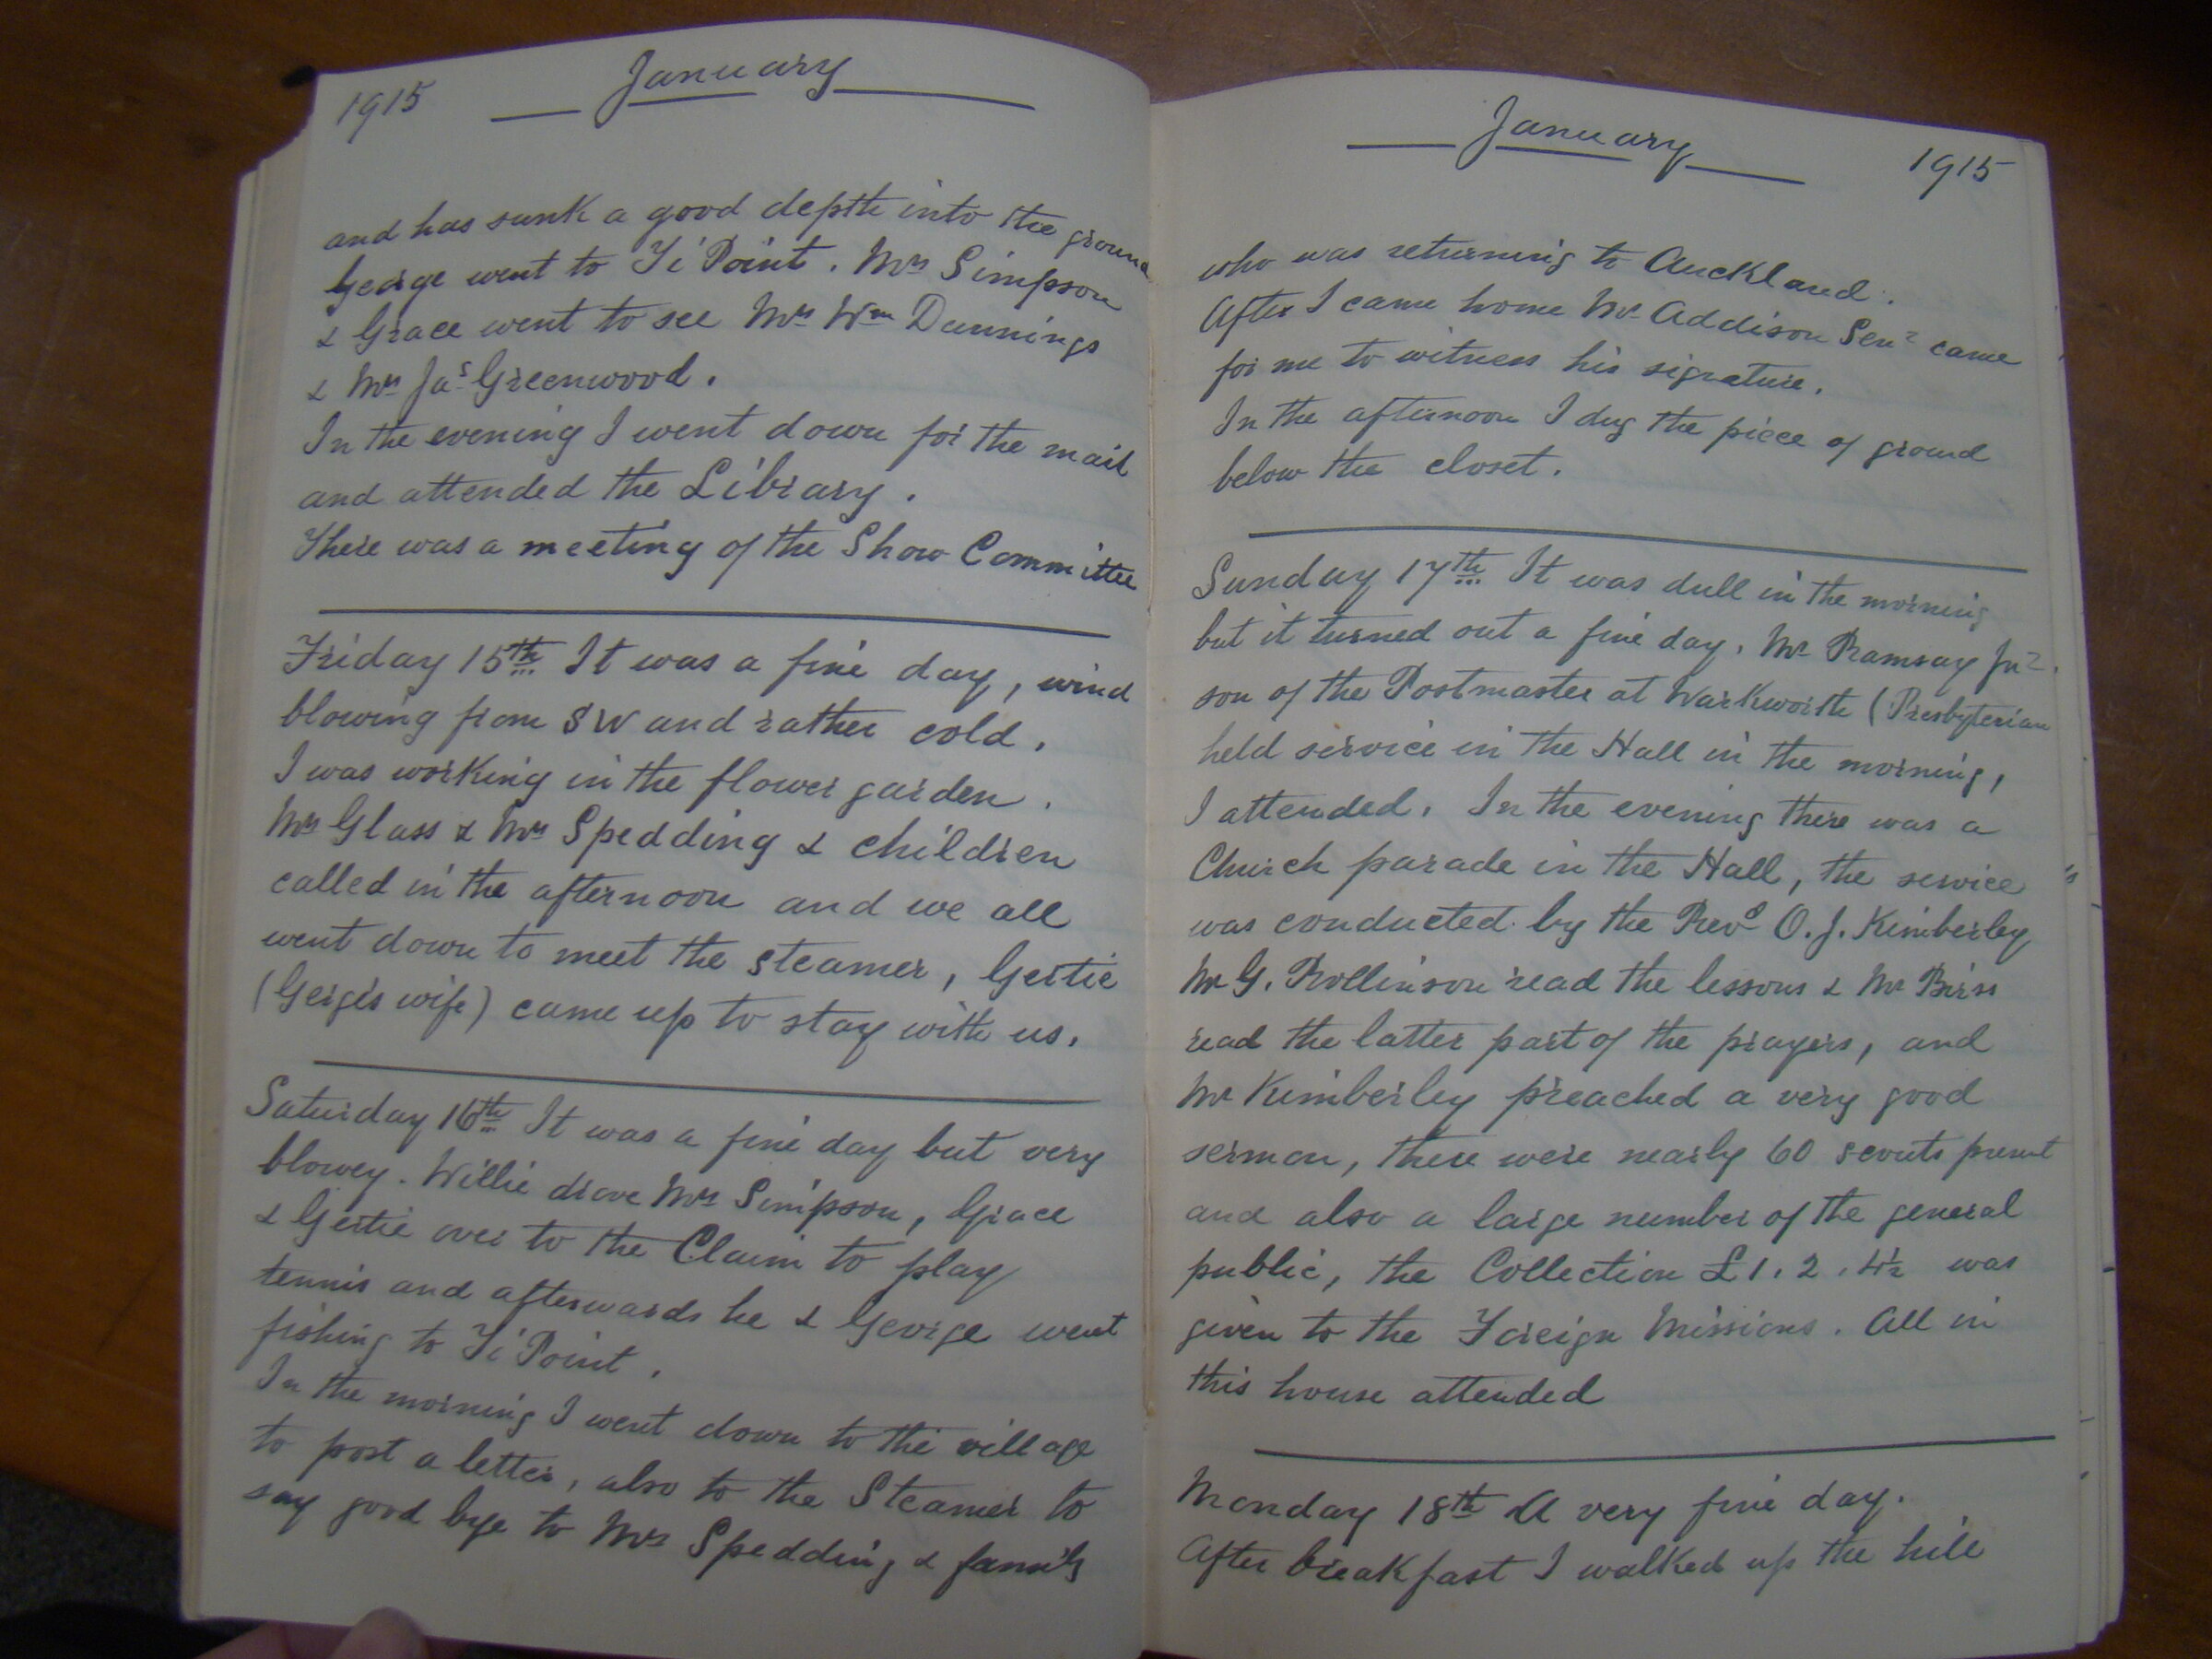 1915 January
and has sunk a good depth into the ground
George went to Ti Point. Mrs Simpson
& Grace went to see Mrs Wm Dunnings
& Mrs Jas Greenwood.
In the evening I went down for the mail
and attended the Library.
There was a meeting of the Show Committee
Friday 15th It was a fine day, wind
blowing from SW and rather cold.
I was working in the flower garden.
Mrs Glass & Mrs Spedding & children
called in the afternoon and we all
went down to meet the steamer, Gertie
(Gerge's wife) came up to stay with us.
Saturday 16th It was a fine day but very
blowey. Willie drove Mrs Simpson, Grace
& Gertie over to the Claim to play
tennis and afterwards he & George went
fishing to Ti Point.
In the morning I went down to the village
to post a letter, also to the Steamer to
say good bye to Mrs Spedding & family
January 1915
who was returning to Auckland.
After I came home Mr Addison Senr came
for me to witness his signature.
In the afternoon I dug the piece of ground
below the closet.
Sunday 17th It was dull in the morning
but it turned out a fine day. Mr Ramsay Jnr.
son of the Postmaster at Warkworth (Presbyterian
held service in the Hall in the morning,
I attended. In the evening there was a
Church parade in the Hall, the service
was conducted by the Revd O. J. Kimberley
Mr G. Rollinson read the lessons & Mr Birss
read the latter part of the prayers, and
Mr Kimberley preached a very good
sermon, there were nearly 60 scouts present
and also a large number of the general
public, the Collection £1. 2. 4½ was
given to the Foreign Missions. All in
this house attended
Monday 18th A very fine day.
After breakfast I walked up the hill